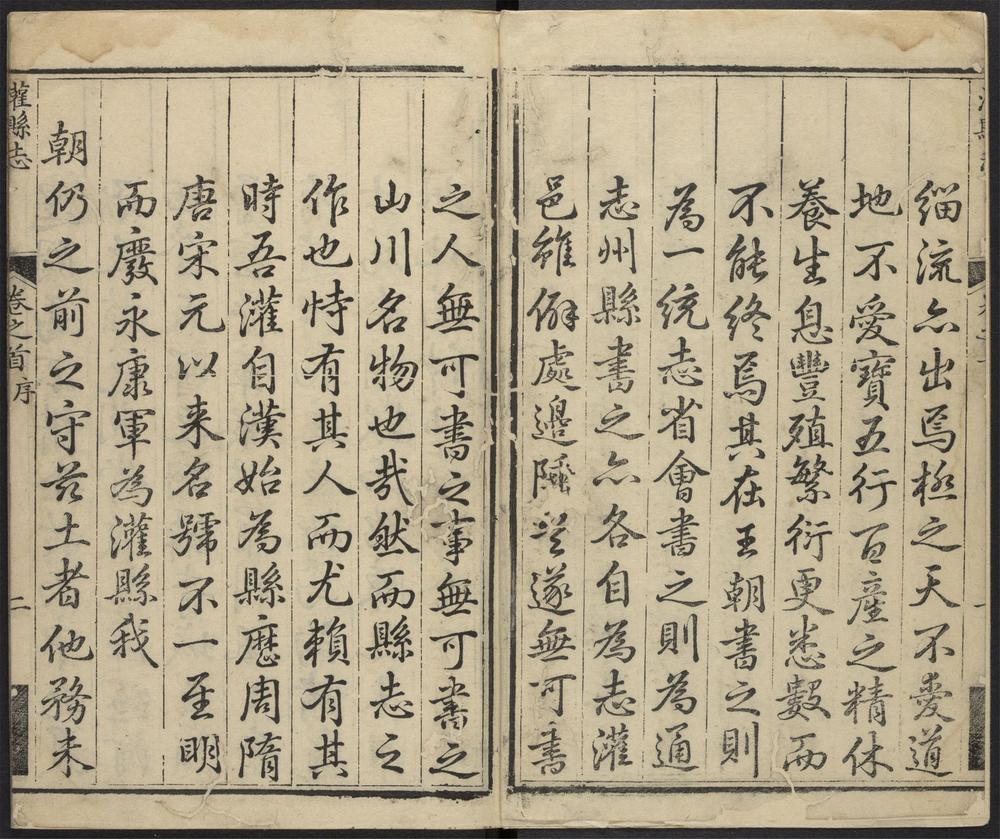 緇流亦出焉極之天不愛道
地不愛寶五行百產之精休
養生息豐殖繁衍更悉數而
不能終焉其在王朝書之則
為一統志省會書之則為通
志州縣書之亦各自為志灌
邑雖僻處邊陲豈遂無可書
之人無可書之事無可書之
山川名物也哉然而縣志之
作也恃有其人而尤賴有其
時吾灌自漢始為縣歷周隋
唐宋元以来名號不一至明
而廢永康軍為灌縣我
朝仍之前之守茲土者他務未
灌縣志
卷之首 序
二